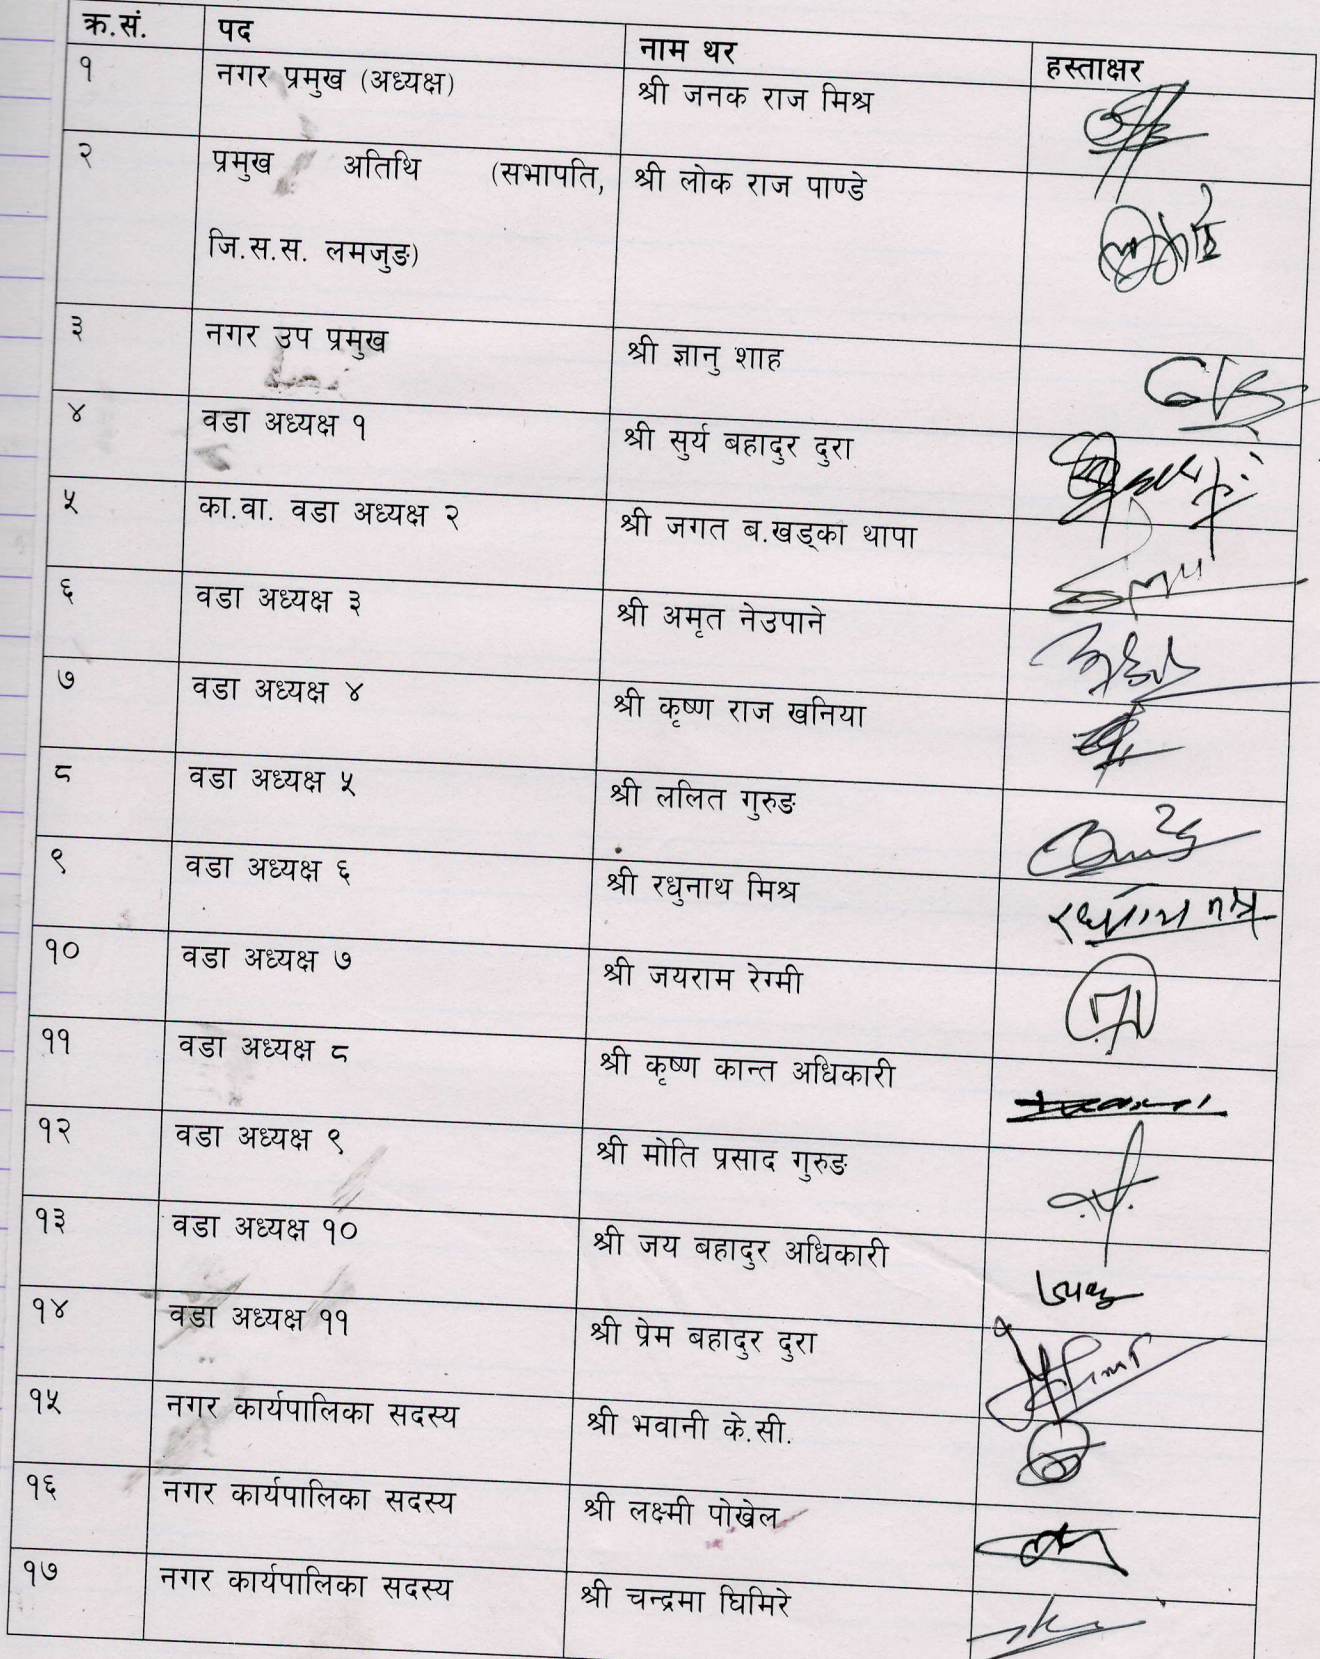 क्र.सं. पद नाम थर हस्ताक्षर
१ नगर प्रमुख (अध्यक्ष) श्री जनक राज मिश्र
२ प्रमुख अतिथि (सभापति, श्री लोक राज पाण्डे
जि.स.स. लमजुङ)
३ नगर उप प्रमुख श्री ज्ञानु शाह
४ वडा अध्यक्ष १ श्री सुर्य बहादुर दुरा
५ का.वा. वडा अध्यक्ष २ श्री जगत ब.खड्का थापा
६ वडा अध्यक्ष ३ श्री अमृत नेउपाने
७ वडा अध्यक्ष ४ श्री कृष्ण राज खनिया
८ वडा अध्यक्ष ५ श्री ललित गुरुङ
९ वडा अध्यक्ष ६ श्री रधुनाथ मिश्र
१० वडा अध्यक्ष ७ श्री जयराम रेग्मी
११ वडा अध्यक्ष ८ श्री कृष्ण कान्त अधिकारी
१२ वडा अध्यक्ष ९ श्री मोति प्रसाद गुरुङ
१३ वडा अध्यक्ष १० श्री जय बहादुर अधिकारी
१४ वडा अध्यक्ष ११ श्री प्रेम बहादुर दुरा
१५ नगर कार्यपालिका सदस्य श्री भवानी के.सी.
१६ नगर कार्यपालिका सदस्य श्री लक्ष्मी पोखेल
१७ नगर कार्यपालिका सदस्य श्री चन्द्रमा घिमिरे